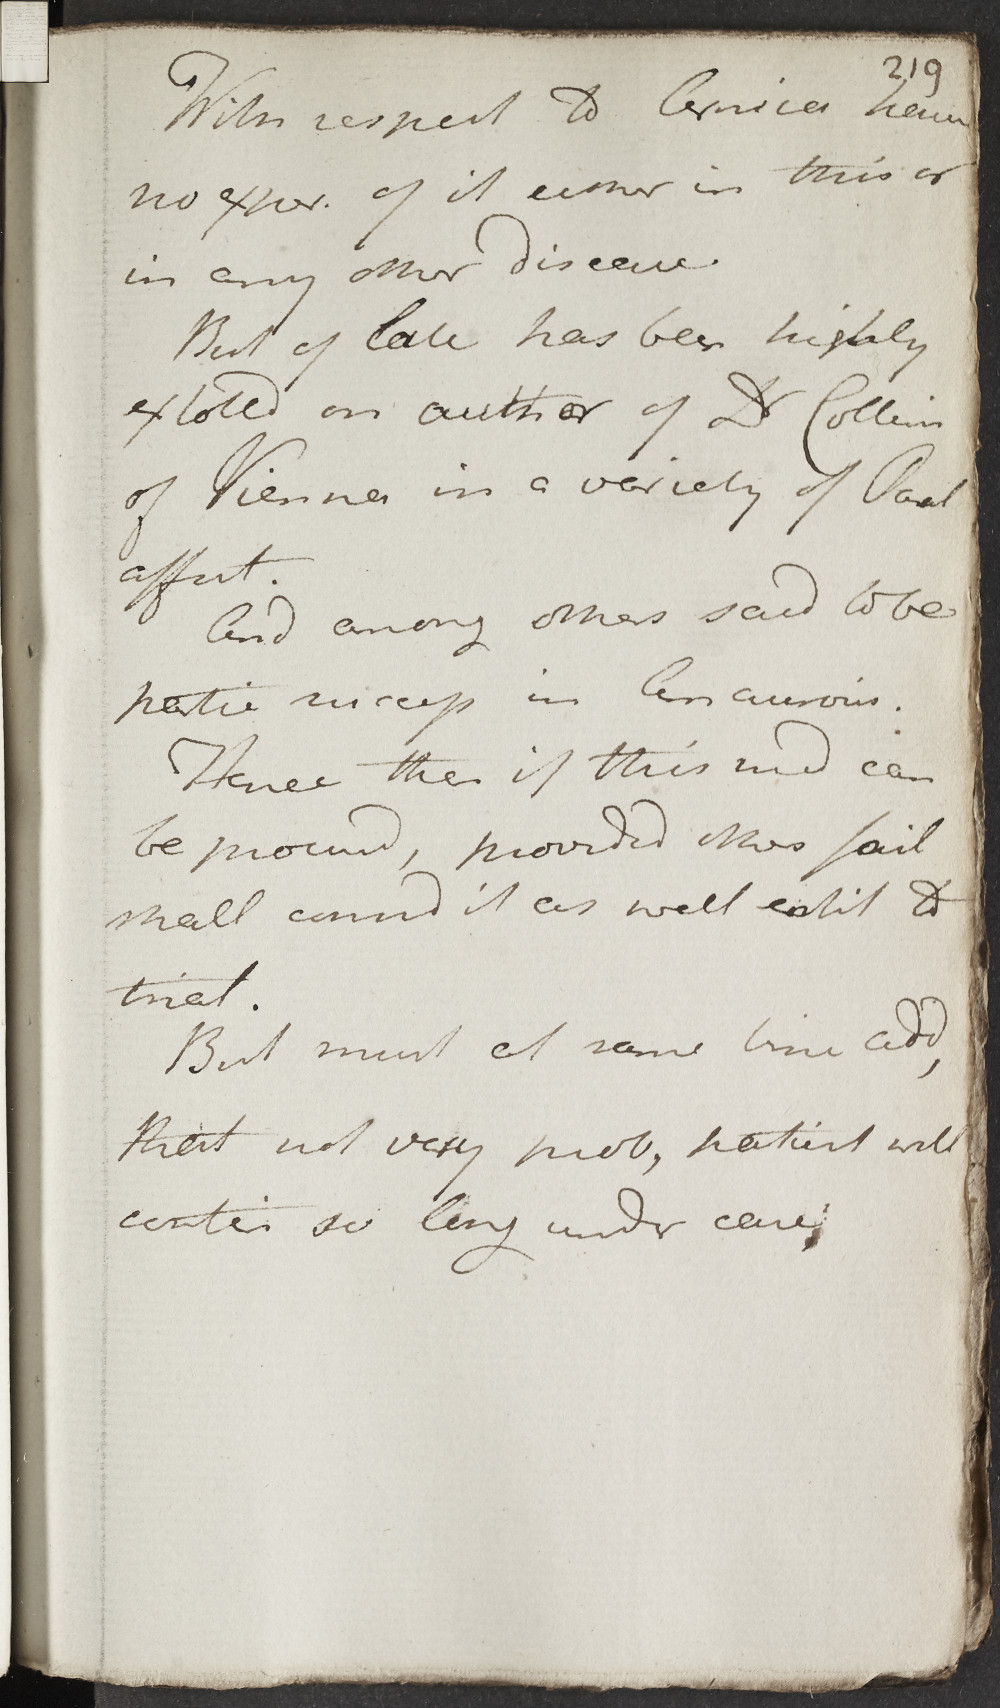 219
With respect to Arnica have
no exper. of it either in this or
in any other disease.
But of late has been highly
extolled on author of Dr Collin
of Vienna in a variety of Paral
affect.
And among others said to be
partic success in Amaurosis.
Hence then if this med can
be procured, provided others fail
shall consid it as well entit to
trial.
But must at same time add,
that not very prob, patient will
contin so long under care;